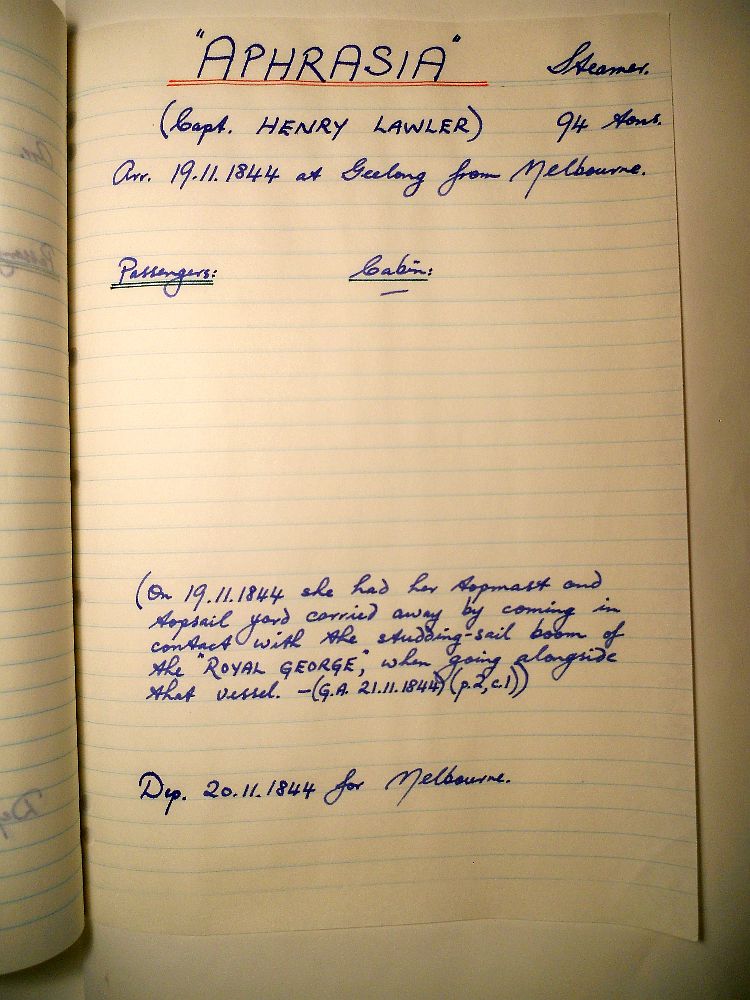 "APHRASIA" Steamer.
(Capt. HENRY LAWLER) 94 tons.
Arr. 19.11.1844 at Geelong from Melbourne.
Passengers: Cabin:
—
(On 19.11.1844 she had her topmast and
topsail yard carried away by coming in
contact with the studding-sail boom of
the "ROYAL GEORGE", when going alongside
that vessel. —(G.A. 21.11.1844)(p.2,c.1))
Dep. 20.11.1844 for Melbourne.